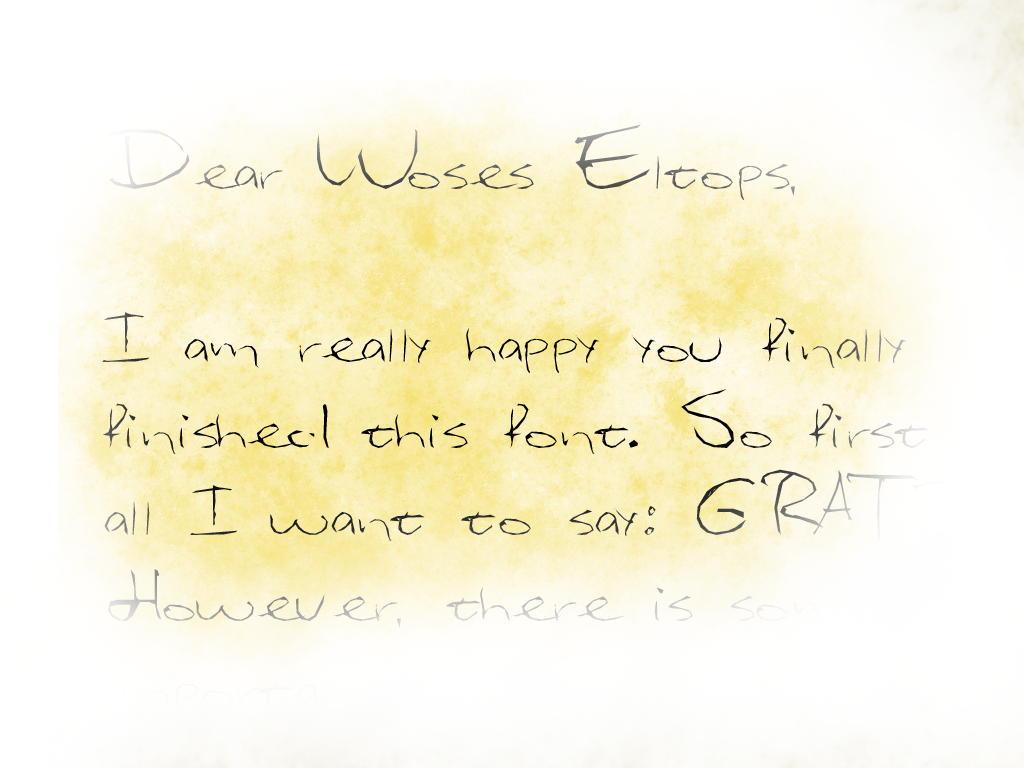 Dear Woses Eltops,
I am really happy you finally
finished this font. So first
all I want to say:
However, there is